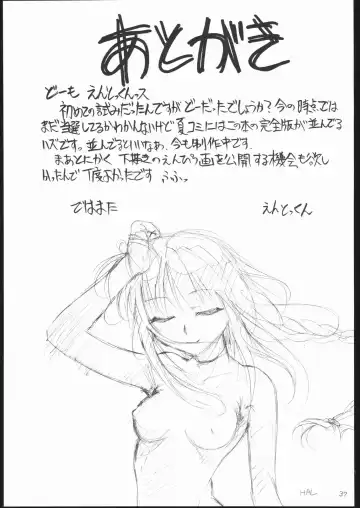 あとがき
どーも えんとっくんっス
初めての試みだったんですがどーだったでしょうか?今の時点では
まだ当選してるかわかんないけど夏コミにはこの本の完全版が並んでる
ハズです。並んでるといいなぁ、今も制作中です。
まあとにかく 下描きのえんぴつ画を公開する機会も欲し
かったんで 丁度よかったです ふふっ
ではまた えんとっくん
HAL 37